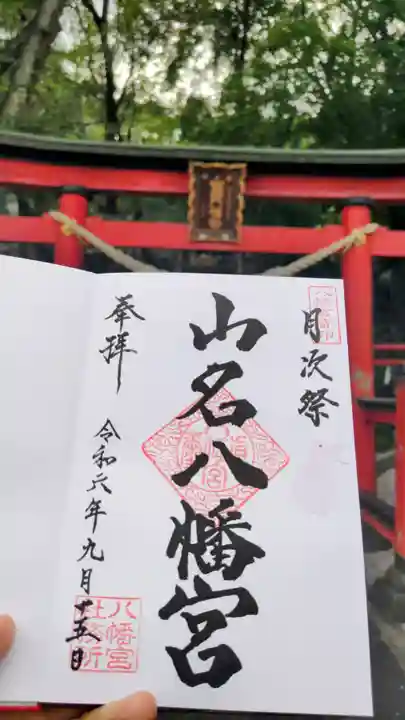 月次祭
山名八幡宮
奉拝
令和六年九月十五日
八幡宮
社務所